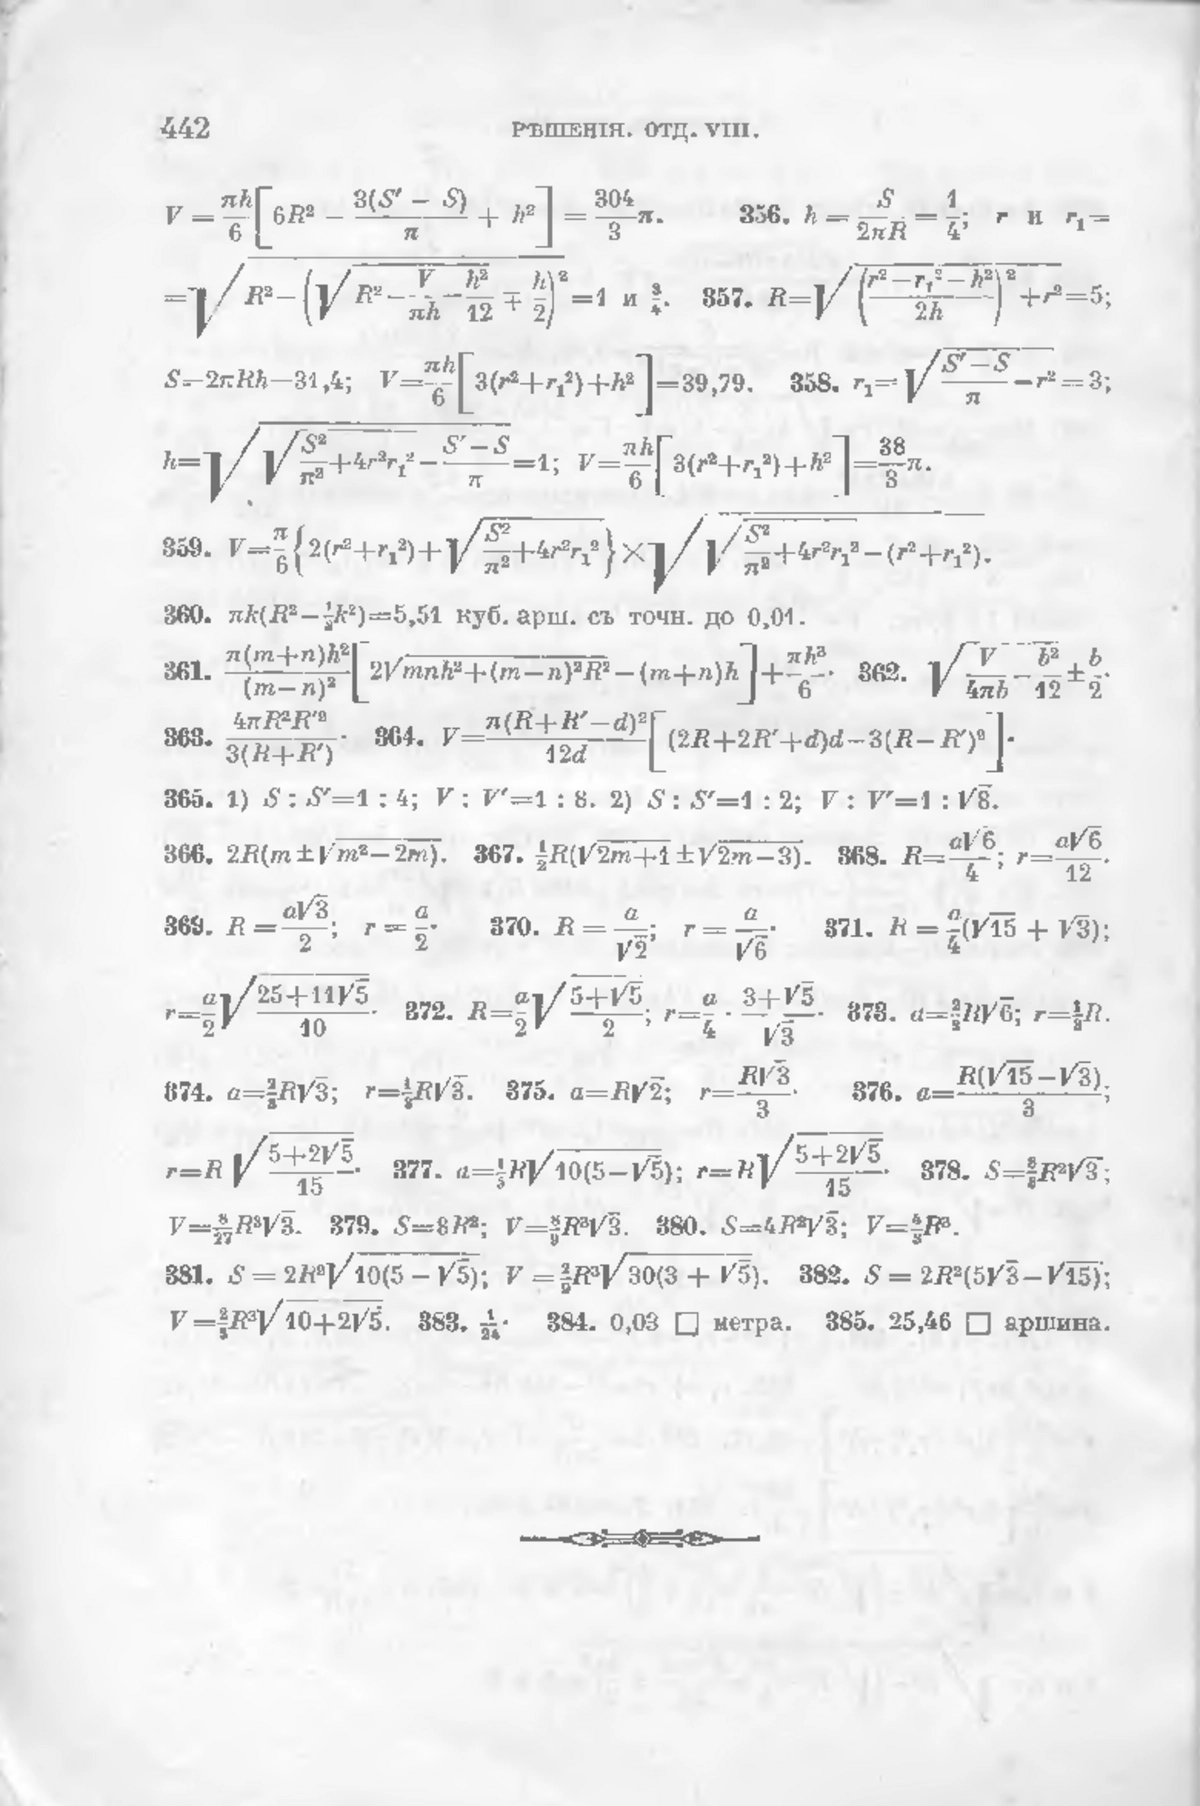 442 РѢШЕНІЯ. ОТД. VIII.
V = πh/6 [6R² − 3(S′ − S)/π + h²] = 304/3 π. 356. h = S/2πR = 1/4; r и r₁ =
= √(R² − (√(R² − V/πh − h²/12) ∓ h/2)²) = 1 и 3/4. 357. R = √(((r² − r₁² − h²)/2h)² + r²) = 5;
S = 2πRh = 31,4; V = πh/6 [3(r² + r₁²) + h²] = 39,79. 358. r₁ = √((S′ − S)/π − r²) = 3;
h = √(√(S²/π² + 4r²r₁²) − (S′ − S)/π) = 1; V = πh/6 [3(r² + r₁²) + h²] = 38/3 π.
359. V = π/6 {2(r² + r₁²) + √(S²/π² + 4r²r₁²)} × √(√(S²/π² + 4r²r₁²) − (r² + r₁²)).
360. πk(R² − ⅓k²) = 5,51 куб. арш. съ точн. до 0,01.
361. π(m+n)h²/(m−n)² [2√(mnh² + (m−n)²R²) − (m+n)h] + πh³/6. 362. √(V/4πb − b²/12) ± b/2.
363. 4πR²R′²/3(R+R′). 364. V = π(R+R′−d)²/12d [(2R+2R′+d)d − 3(R−R′)²].
365. 1) S : S′ = 1 : 4; V : V′ = 1 : 8. 2) S : S′ = 1 : 2; V : V′ = 1 : √8.
366. 2R(m ± √(m² − 2m)). 367. ½R(√(2m+1) ± √(2m−3)). 368. R = a√6/4; r = a√6/12.
369. R = a√3/2; r = a/2. 370. R = a/√2; r = a/√6. 371. R = a/4(√15 + √3);
r = a/2 √((25+11√5)/10). 372. R = a/2 √((5+√5)/2); r = a/4 · (3+√5)/√3. 373. a = ⅔R√6; r = ⅓R.
374. a = ⅔R√3; r = ⅓R√3. 375. a = R√2; r = R√3/3. 376. a = R(√15 − √3)/3;
r = R√((5+2√5)/15). 377. a = ⅕R√(10(5−√5)); r = R√((5+2√5)/15). 378. S = 8/3 R²√3;
V = 8/27 R³√3. 379. S = 8R²; V = 8/9 R³√3. 380. S = 4R²√3; V = 4/3 R³.
381. S = 2R²√(10(5 − √5)); V = 2/9 R³√(30(3 + √5)). 382. S = 2R²(5√3 − √15);
V = 2/3 R³√(10+2√5). 383. 1/24. 384. 0,03 □ метра. 385. 25,46 □ аршина.